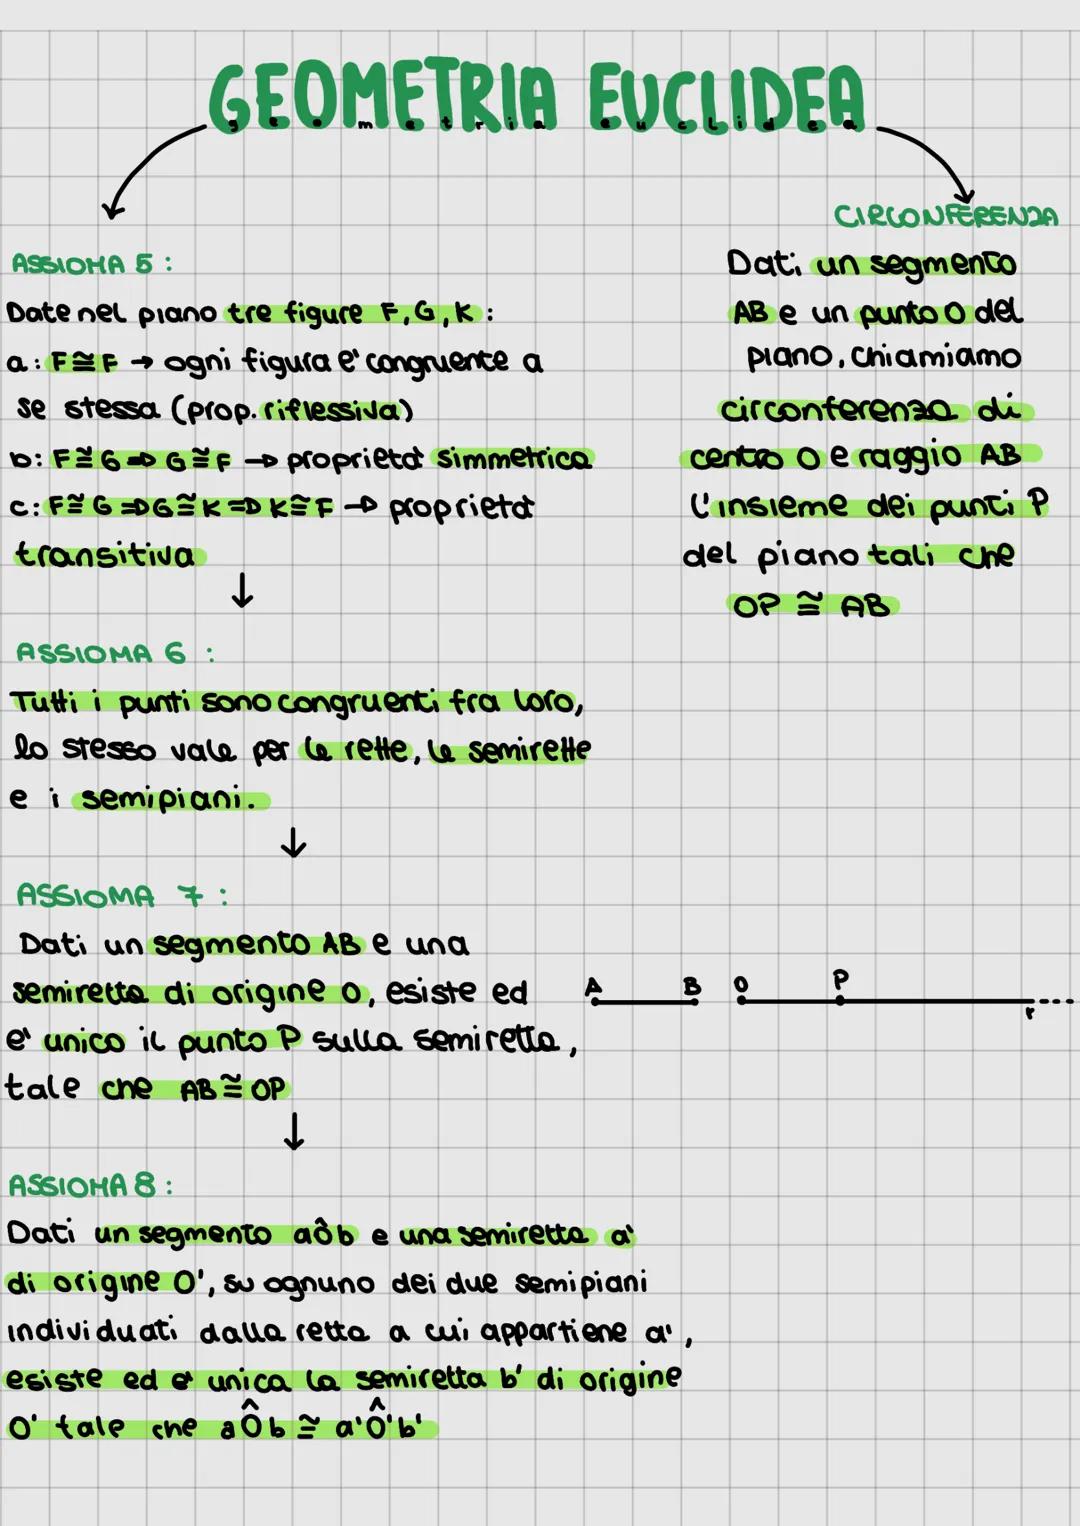 GEOMETRIA EUCLIDEA
geometria euclidea
ASSIOMA 5 :
Date nel piano tre figure F, G, K :
a : F ≅ F → ogni figura e' congruente a
se stessa (prop. riflessiva)
b : F ≅ G ⇒ G ≅ F → proprietà simmetrica
c : F ≅ G ⇒ G ≅ K ⇒ K ≅ F → proprietà
transitiva
↓
ASSIOMA 6 :
Tutti i punti sono congruenti fra loro,
lo stesso vale per le rette, le semirette
e i semipiani.
↓
ASSIOMA 7 :
Dati un segmento AB e una
semiretta di origine O, esiste ed
e' unico il punto P sulla semiretta,
tale che AB ≅ OP
A B O P
r
↓
ASSIOMA 8 :
Dati un segmento aôb e una semiretta a'
di origine O', su ognuno dei due semipiani
individuati dalla retta a cui appartiene a',
esiste ed e' unica la semiretta b' di origine
O' tale che aÔb ≅ a'Ô'b'
CIRCONFERENZA
Dati un segmento
AB e un punto O del
piano, chiamiamo
circonferenza di
centro O e raggio AB
l'insieme dei punti P
del piano tali che
OP ≅ AB